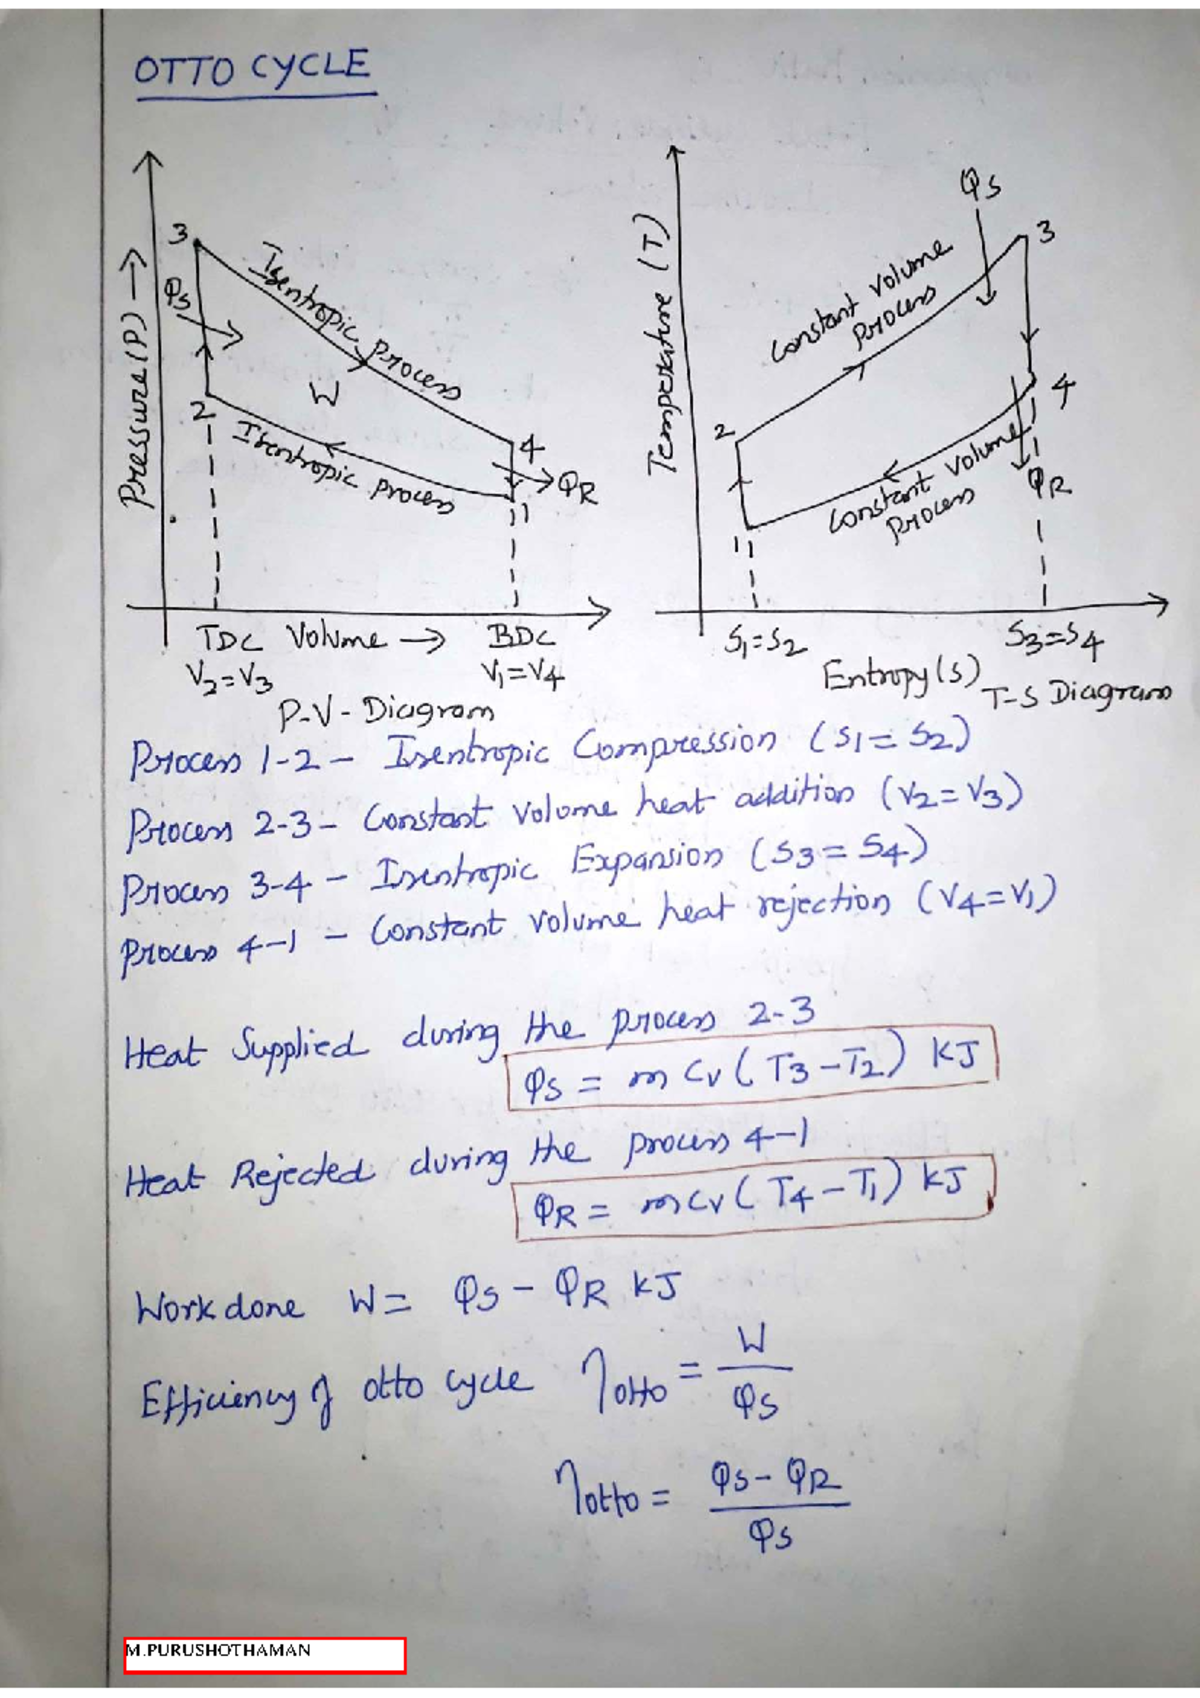 OTTO CYCLE
Pressure (P) →
3
QS
2
Isentropic process
W
Isentropic process
4
QR
1
TDC Volume → BDC
V2=V3 V1=V4
P-V-Diagram
Temperature (T)
QS
3
Constant volume
process
2
4
Constant volume
process
QR
1
S1=S2 S3=S4
Entropy(s)
T-S Diagram
Process 1-2 - Isentropic Compression (S1=S2)
Process 2-3 - Constant volume heat addition (V2=V3)
Process 3-4 - Isentropic Expansion (S3=S4)
Process 4-1 - Constant volume heat rejection (V4=V1)
Heat Supplied during the process 2-3
QS = m Cv (T3-T2) KJ
Heat Rejected during the process 4-1
QR = mCv (T4-T1) KJ
Work done W = QS - QR KJ
Efficiency of otto cycle ηotto = W
QS
ηotto = QS - QR
QS
M.PURUSHOTHAMAN